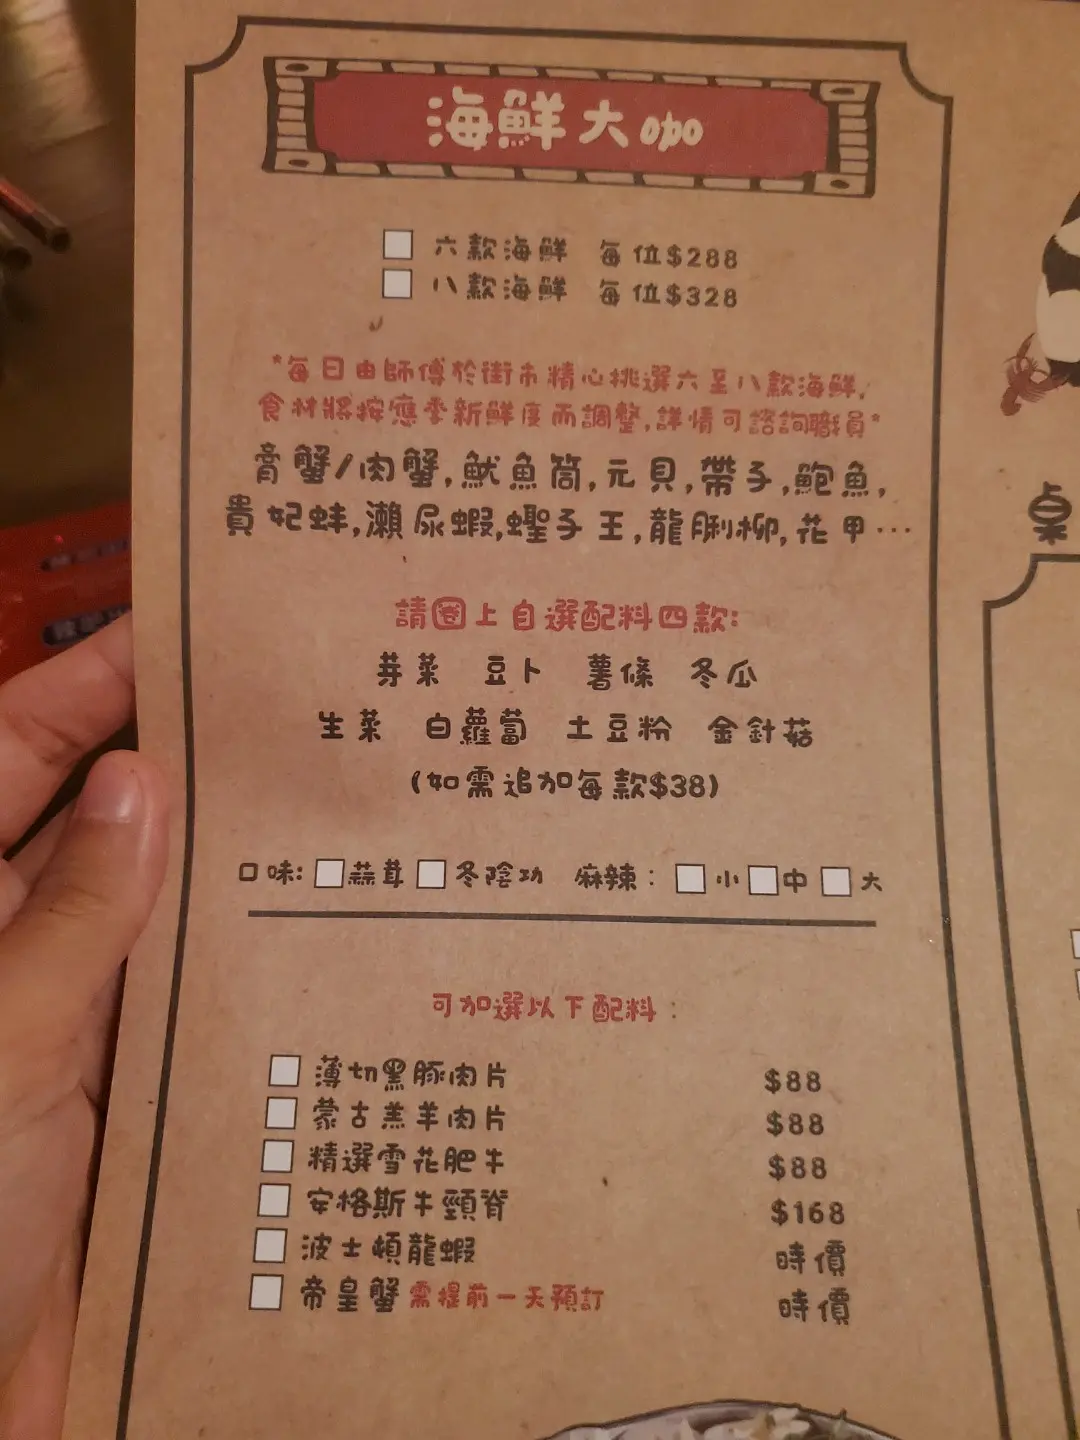 海鮮大咖
六款海鮮 每位$288
八款海鮮 每位$328
*每日由師傅於街市精心挑選六至八款海鮮,
食材將按應季新鮮度而調整,詳情可諮詢職員*
膏蟹/肉蟹,魷魚筒,元貝,帶子,鮑魚,
貴妃蚌,瀨尿蝦,蟶子王,龍脷柳,花甲…
請圈上自選配料四款:
芽菜 豆卜 薯條 冬瓜
生菜 白蘿蔔 土豆粉 金針菇
(如需追加每款$38)
口味: 蒜茸 冬陰功 麻辣: 小 中 大
可加選以下配料:
薄切黑豚肉片 $88
蒙古羔羊肉片 $88
精選雪花肥牛 $88
安格斯牛頸脊 $168
波士頓龍蝦 時價
帝皇蟹 需提前一天預訂 時價
桌